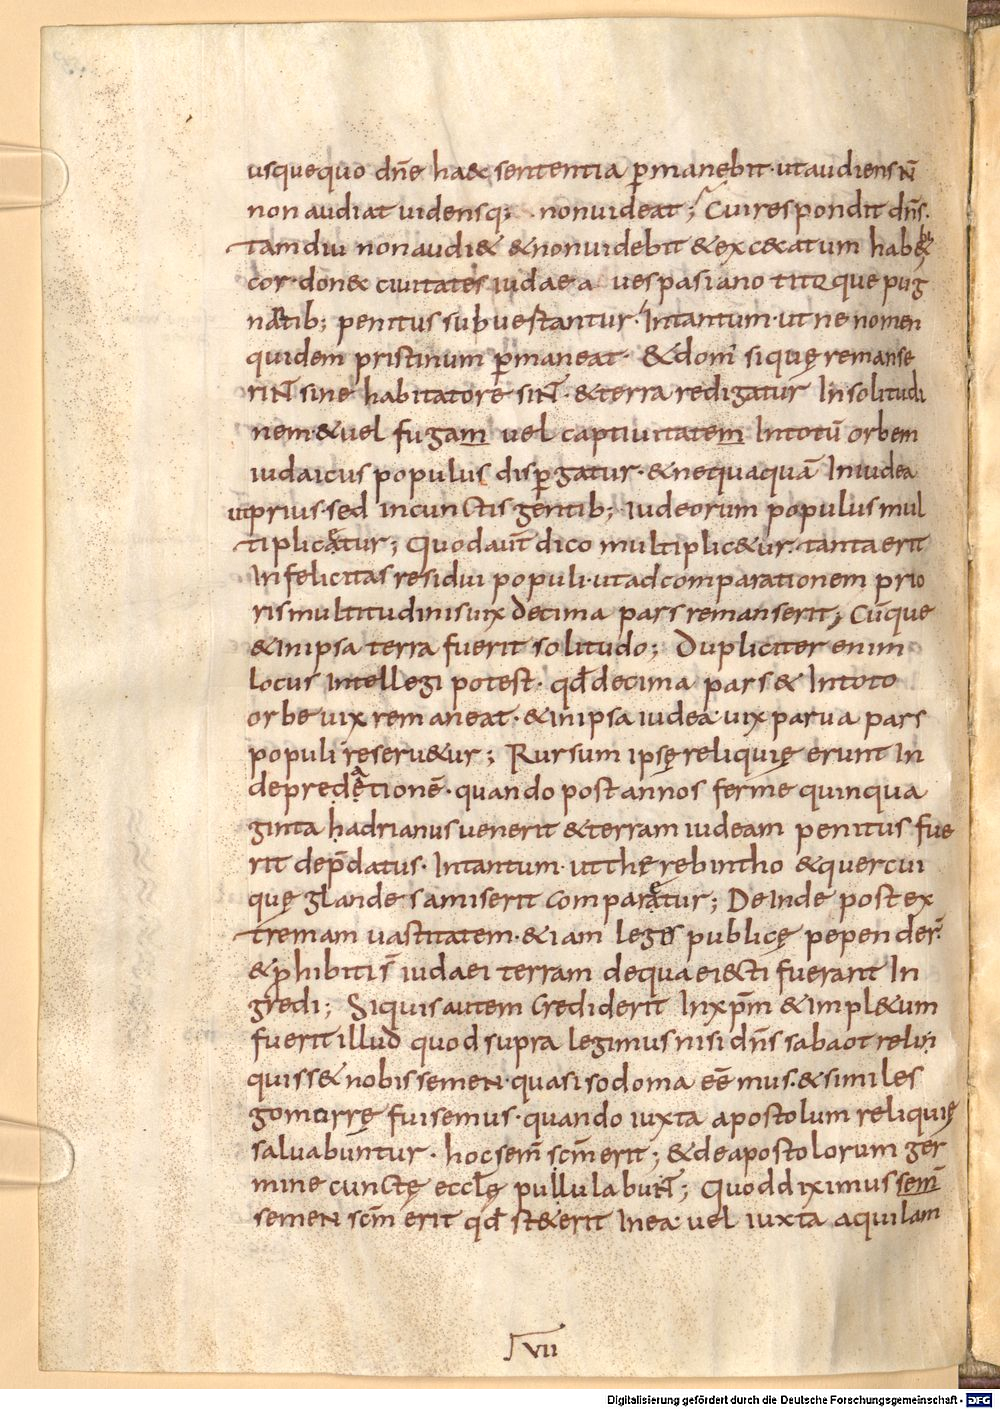 usquequo dn̄e haec sententia p̄manebit· ut audiens n̄
non audiat uidensq; · non uideat; Cui respondit dn̄s·
tamdiu non audi& & non uidebit & exc&atum hab&bit
cor· don& ciuitates iudaea uespasiano titoque pug
nantib; penitus subuertantur· Intantum· ut ne nomen
quidem pristinum p̄maneat· & dom' siquę remanse
rint sine habitatore sint· & terra redigatur In solitudi
nem· & uel fugam uel captiuitatem In totū orbem
iudaicus populus disp̄gatur· & nequaquā In iudea
ut prius· sed in cunctis gentib; iudeorum populus mul
tiplicetur; Quod aut̄ dico multiplic&ur· tanta erit
Infelicitas residui populi· ut ad comparationem prio
ris multitudinis uix decima pars remanserit; Cūque
& in ipsa terra fuerit solitudo; Dupliciter enim
locus intellegi potest· qd̄ decima pars & In toto
orbe uix remaneat· & in ipsa iudea uix parua pars
populi reseru&ur; Rursum ipsę reliquię erunt In
depredationē· quando post annos ferme quinqua
ginta hadrianus uenerit & terram iudeam penitus fue
rit dep̄datus· Intantum· ut therebintho & quercui
quę glandes amiserit comparetur; Deinde post ex
tremam uastitatem· & iam leges publicę pepender̄·
& p̄hibiti s̄ iudaei terram de qua eiecti fuerant In
gredi; Siquis autem crediderit In xp̄m & impl&um
fuerit illud quod supra legimus nisi dn̄s sabaot reliq
quiss& nobis semen· quasi sodoma eēmus· & similes
gomorrę fuisemus· quando iuxta apostolum reliquię
saluabuntur· hoc sem̄ scm̄ erit; & de apostolorum ger
mine cunctę ecclę pullulabunt; Quod diximus sem̄
semen scm̄ erit qd̄ st&erit In ea· uel iuxta aquilam
VII
Digitalisierung gefördert durch die Deutsche Forschungsgemeinschaft - DFG